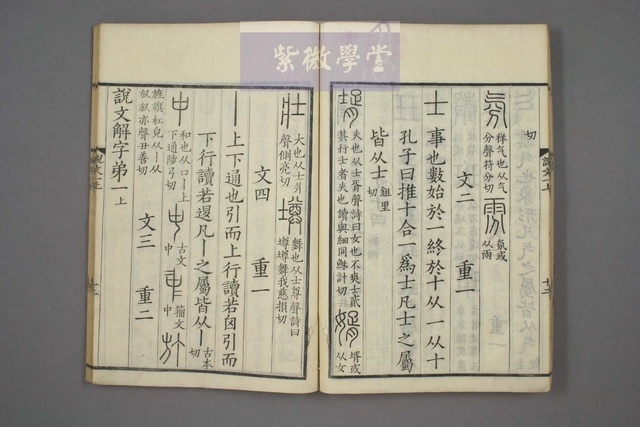 紫微學堂
切
氛 祥气也从气
分聲符分切
雰 氛或
从雨
文二 重一
士 事也數始於一終於十从一从十
孔子曰推十合一爲士凡士之屬
皆从士 鉏里
切
壻 夫也从士胥聲詩曰女也不爽士貳
其行士者夫也讀與細同穌計切
婿 壻或
从女
壯 大也从士爿
聲側亮切
壿 舞也从士尊聲詩曰
壿壿舞我慈損切
文四 重一
丨 上下通也引而上行讀若囟引而
下行讀若𨓤凡丨之屬皆从丨 古本
切
中 和也从口丨上
下通陟弓切
古文
中
籒文
中
旌旗杠皃从丨从
㫃㫃亦聲丑善切
文三 重二
說文解字弟一上